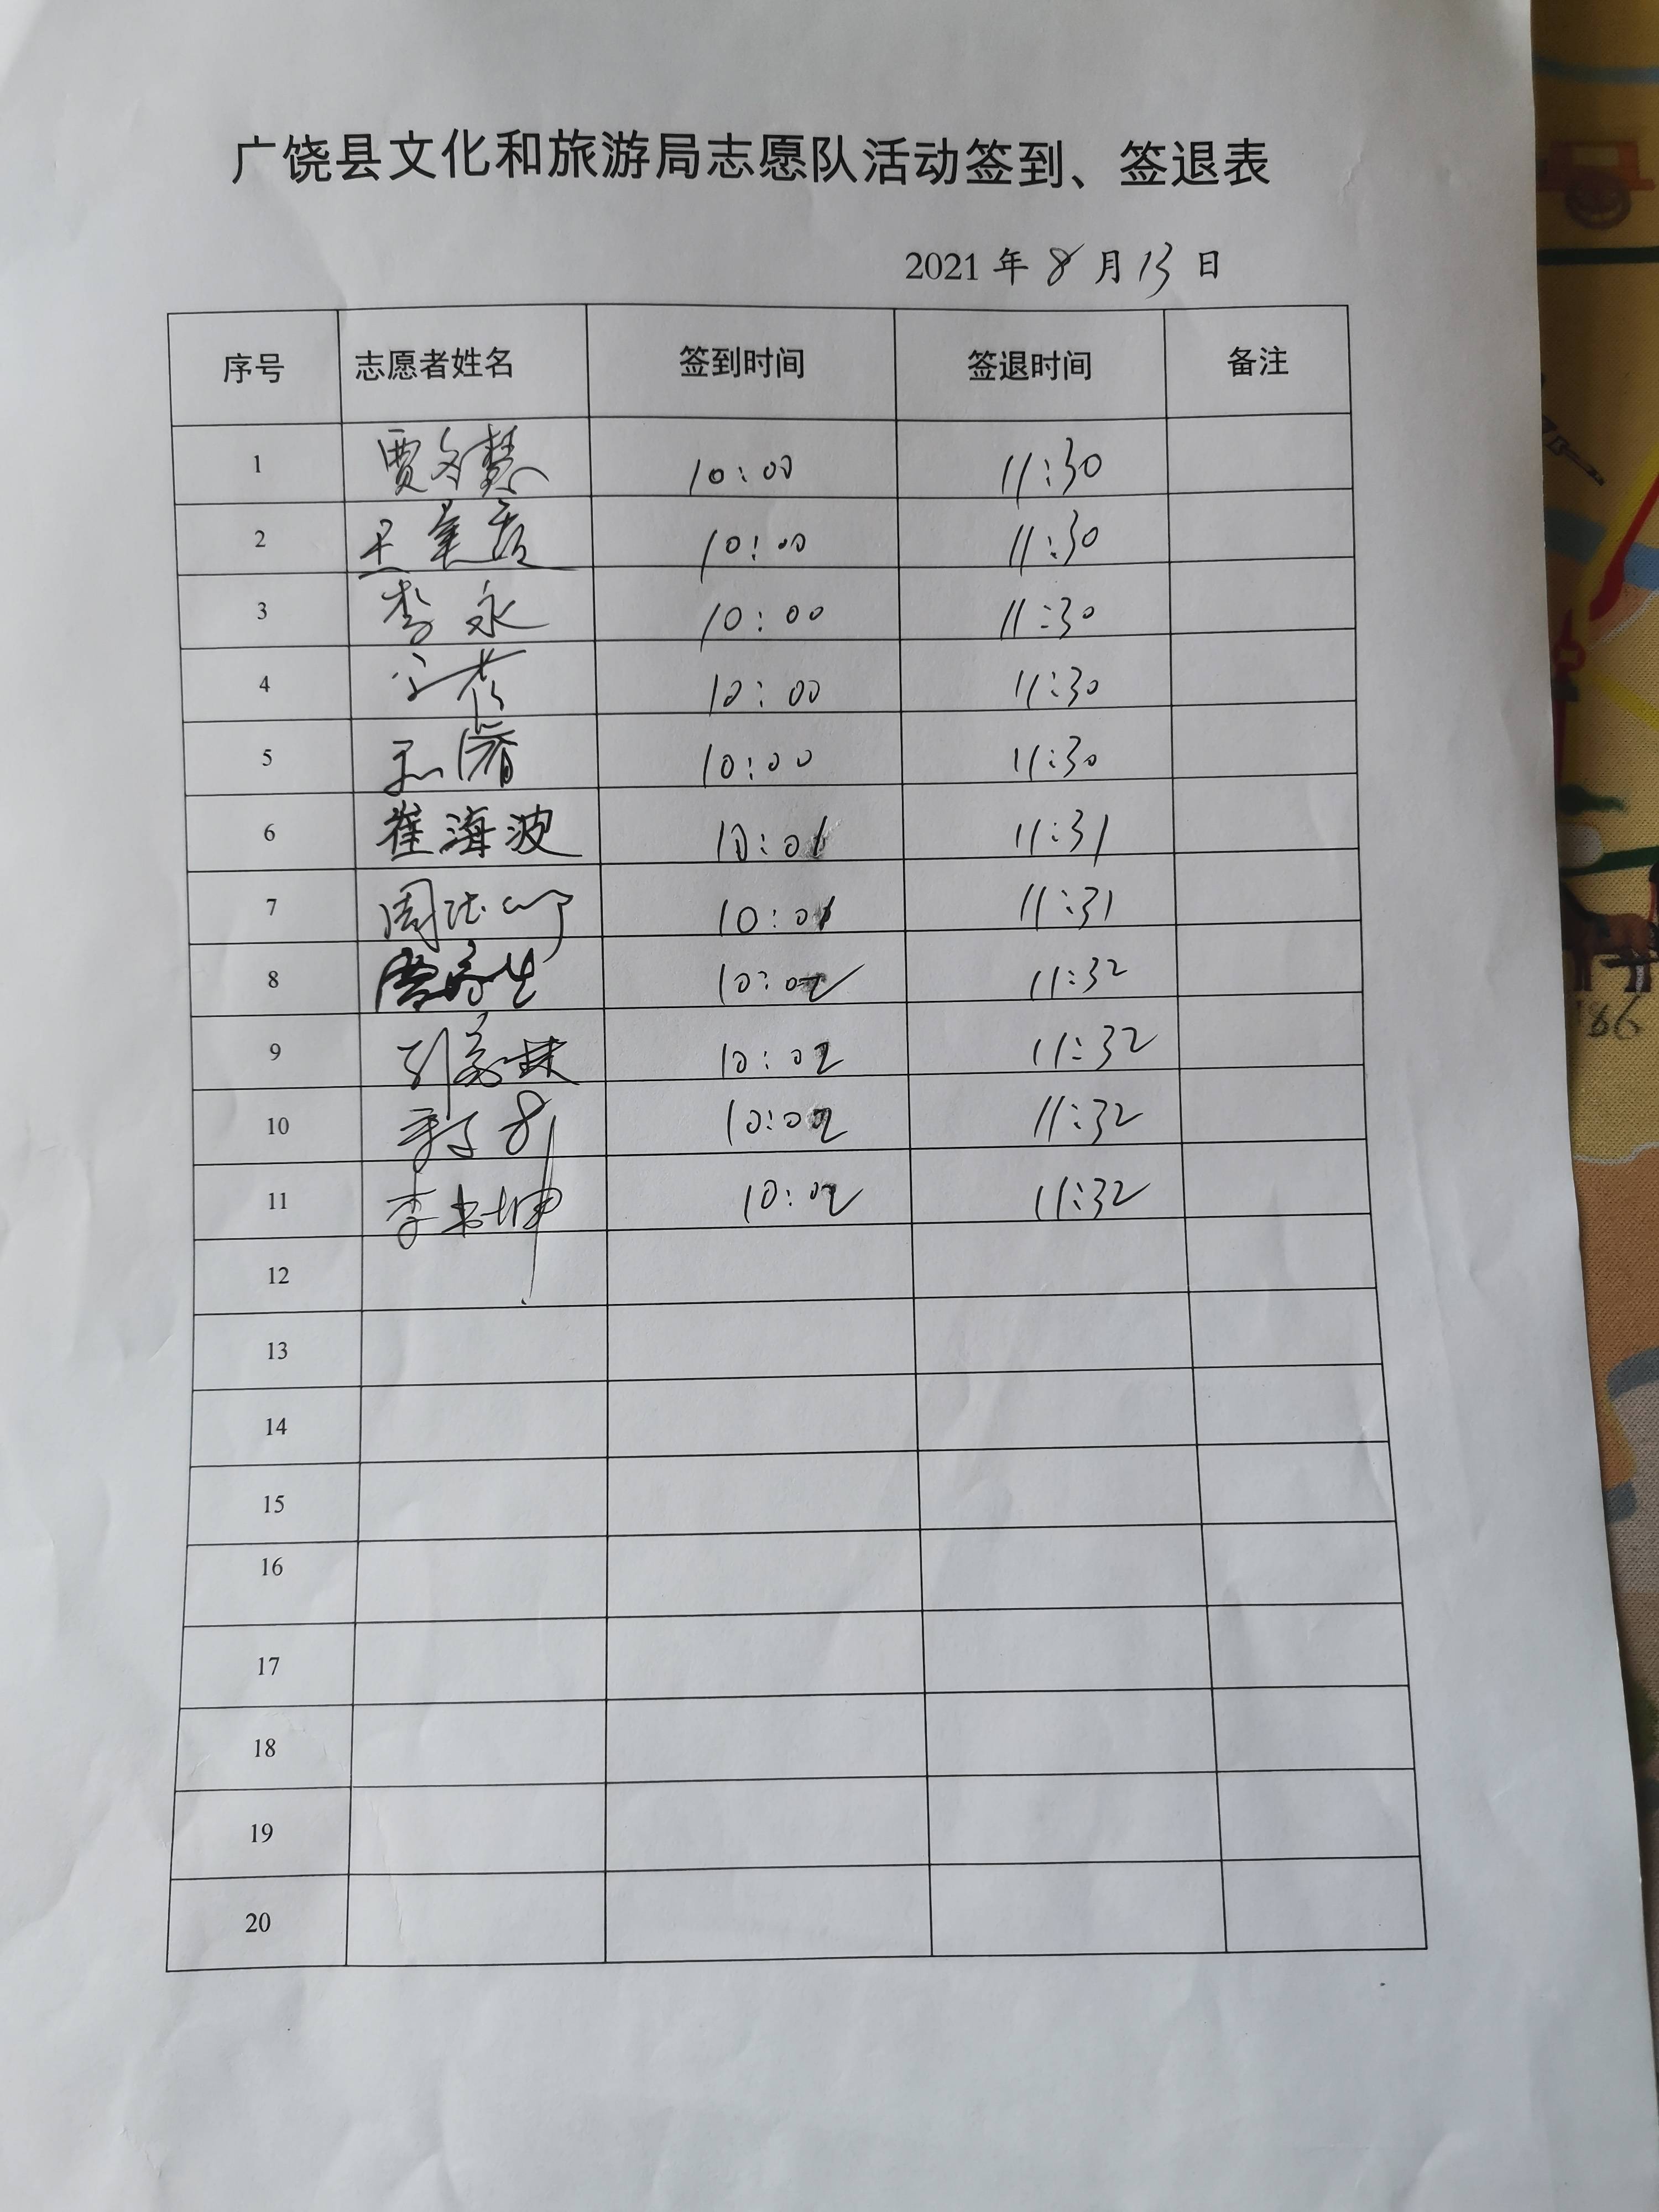 广饶县文化和旅游局志愿队活动签到、签退表
2021 年 8 月 13 日
序号 志愿者姓名 签到时间 签退时间 备注
1 贾冬慧 10:00 11:30
2 10:00 11:30
3 李永 10:00 11:30
4 10:00 11:30
5 10:00 11:30
6 崔海波 10:01 11:31
7 周 10:01 11:31
8 10:02 11:32
9 10:02 11:32
10 10:02 11:32
11 李 坤 10:02 11:32
12
13
14
15
16
17
18
19
20
186